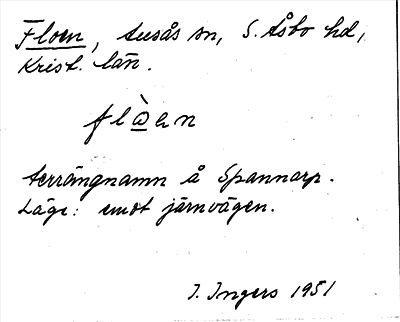 Floen, Ausås sn, S. Åsbo hd,
Krist. län.
flòen
terrängnamn å Spannarp.
Läge: emot järnvägen.
I. Ingers 1951